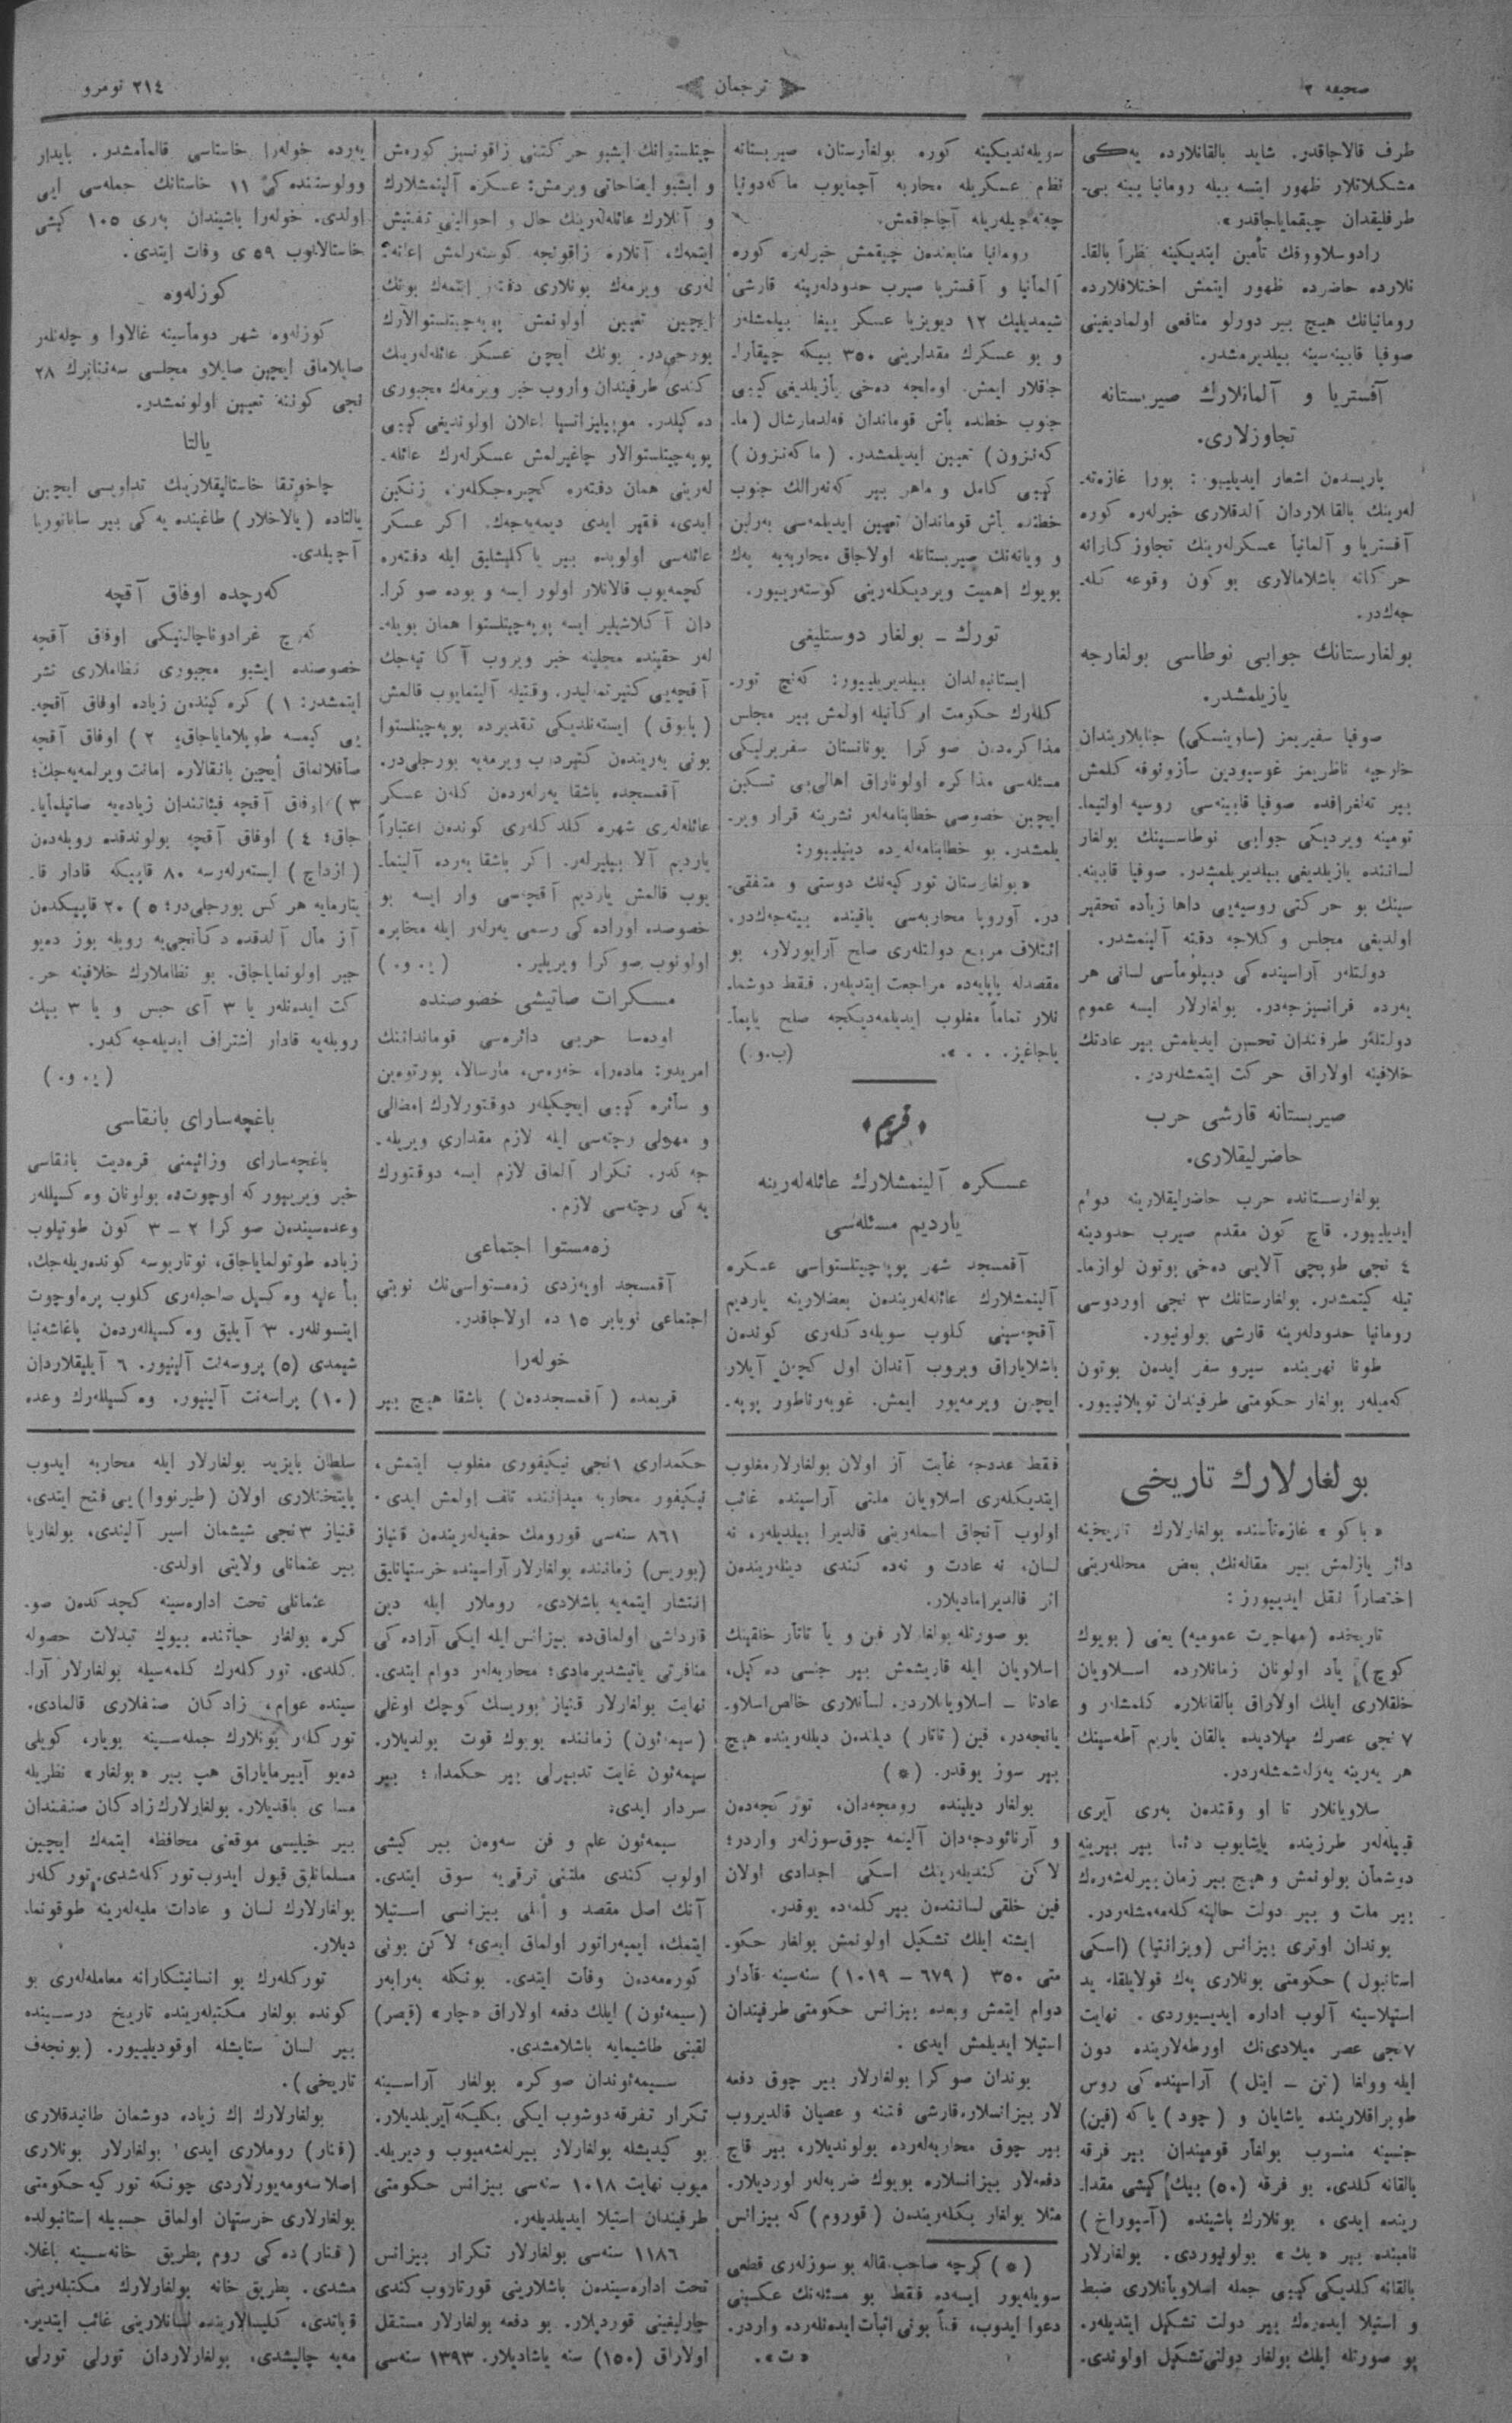 صحیفه ٢
ترجمان
٢١٤ نومرو
طرف قالاجاقدر. شاید بالقانلارده یه‌کی
مشکلاتلار ظهور ایتسه بیله رومانیا یینه بی‌ـ
طرفلیقدان چیقمایاجاقدر».
رادوسلاووفك تأمین ایتدیکینه نظراً بالقا‌ـ
نلارده حاضرده ظهور ایتمش اختلافلارده
رومانیانك هیچ بیر دورلو منافعی اولمادیغینی
صوفیا قابینه‌سینه بیلدیرمشدر.
آفستریا و آلمانلارك صیربستانه
تجاوزلاری.
پاریسدن اشعار ایدیلییور: بورا غازه‌ته‌ـ
له‌رینك بالقانلاردان آلدقلاری خبرلره کوره
آفستریا و آلمانیا عسکرلرینك تجاوز کارانه
حرکاته باشلامالاری بو کون وقوعه کله‌ـ
جه‌كدر.
بولغارستانك جوابی نوطاسی بولغارجه
یازیلمشدر.
صوفیا سفیریمز (ساوینسکی) جنابلاریندان
خارجیه ناظریمز غوسپودین سازونوفه کلمش
بیر ته‌لغرافده صوفیا قابینه‌سی روسیه اولتیما‌ـ
تومینه ویردیکی جوابی نوطاسینك بولغار
لساننده یازیلدیغی بیلدیریلمشدر. صوفیا قابینه‌ـ
سینك بو حرکتی روسیه‌یی داها زیاده تحقیر
اولدیغی مجلس وکلاجه دقته آلینمشدر.
دولتلر آراسینده کی دیپلوماسی لسانی هر
یه‌رده فرانسیزجه‌در. بولغارلار ایسه عموم
دولتلر طرفندان تحسین ایدیلمش بیر عادتك
خلافینه اولاراق حرکت ایتمشله‌ردر.
صیربستانه قارشی حرب
حاضرلیقلاری.
بولغارستانده حرب حاضرلیقلارینه دوام
ایدیلییور. قاچ کون مقدم صیرب حدودینه
٤ نجی طوپچی آلایی ده‌خی بوتون لوازما‌ـ
تیله کیتمشدر. بولغارستانك ٣ نجی اوردوسی
رومانیا حدودله‌رینه قارشی بولونیور.
طونا نهرینده سیروسفر ایدن بوتون
که‌میله‌ر بولغار حکومتی طرفیندان توپلانییور.
سویله‌ندیکینه کوره بولغارستان، صیربستانه
نظام عسکریله محاربه آچمایوب ماکه‌دونیا
چه‌ته‌جیله‌ریله آچاجاقمش.
رومانیا منابعندن چیقمش خبرله‌ره کوره
آلمانیا و آفستریا صیرب حدودله‌رینه قارشی
شیمدیلیك ١٢ دیویزیا عسکر ییغا بیلمشله‌ر
و بو عسکرك مقدارینی ٣٥٠ بیکه چیقارا‌ـ
جاقلار ایمش. اوه‌لجه ده‌خی یازیلدیغی کیبی
جنوب خطنده باش قوماندان فه‌لدمارشال (ما‌ـ
که‌نزون) تعیین ایدیلمشدر. (ماکه‌نزون)
کیبی کامل و ماهر بیر که‌نه‌رالك جنوب
خطنده باش قوماندان تعیین ایدیلمه‌سی به‌رلین
و ویانه‌نك صیربستانله اولاجاق محاربه‌یه پك
بویوك اهمیت ویردیکله‌رینی کوستریبور.
تورك ـ بولغار دوستلیغی
ایستانبولدان بیلدیریلییور: که‌نج تور‌ـ
کله‌رك حکومت ارکانیله اولمش بیر مجلس
مذاکره‌دن صوکرا یونانستان سفربرلیکی
مسئله‌سی مذاکره اولوناراق اهالی‌یی تسکین
ایچین خصوصی خطابنامه‌لر نشرینه قرار ویر‌ـ
یلمشدر. بو خطابنامه‌له‌رده دینیلییور:
«بولغارستان تورکیه‌نك دوستی و متفقی‌ـ
در. آوروپا محاربه‌سی یاقینده بیته‌جه‌كدر.
ائتلاف مربع دولتله‌ری صلح آرایورلار، بو
مقصدله پاپایه‌ده مراجعت ایتدیله‌ر. فقط دوشما‌ـ
نلار تماماً مغلوب ایدیلمه‌دیکجه صلح یاپما‌ـ
یاجاغیز. . . .». (ب.و.)
﴿قریم﴾
عسکره آلینمشلارك عائله‌له‌رینه
یاردیم مسئله‌سی
آقمسجد شهر پوپه‌چیتلستواسی عسکره
آلینمشلارك عائله‌له‌ریندن بعضلارینه یاردیم
آقچه‌سینی کلوب سویله‌دکله‌ری کوندن
باشلایاراق ویروب آندان اول کچن آیلار
ایچین ویرمه‌یور ایمش. غوبه‌رناطور پوپه‌ـ
چیتلستوانك ایشبو حرکتنی زاقونسیز کوره‌ش
و ایشبو ایضاحاتی ویرمش: عسکره آلینمشلارك
و آنلارك عائله‌له‌رینك حال و احوالینی تفتیش
ایتمه‌ك، آنلاره زاقونجه کوستریلمش اعانه‌ـ
له‌ری ویرمه‌ك بونلاری دفتر ایتمه‌ك بونك
ایچین تعیین اولونمش پوپه‌چیتلستوالارك
بورجی‌در. بونك ایچن عسکر عائله‌له‌رینك
کندی طرفیندان واروب خبر ویرمه‌ك مجبوری
ده‌کیلدر. موبیلیزاتسیا اعلان اولوندیغی کیبی
پوپه‌چیتلستوالار چاغیرلمش عسکرله‌رك عائله‌ـ
له‌رینی همان دفتره کچیره‌جکله‌ر، زنکین
ایدی، فقیر ایدی دیمه‌یه‌جه‌ك. اکر عسکر
عائله‌سی اولوبده بیر یاکلیشلیق ایله دفتره
کچمه‌یوب قالانلار اولور ایسه و بوده صوکرا‌ـ
دان آکلاشیلیر ایسه پوپه‌چیتلستوا همان بویله‌ـ
له‌ر حقینده مجلینه خبر ویروب آکا تیه‌جك
آقچه‌یی کتیرتمه‌لیدر. وقتیله آلینمایوب قالمش
(پایوق) ایسته‌ندیکی تقدیرده پوپه‌چیتلستوا
بونی یه‌ریندن کتیردیب ویرمه‌یه بورجلی‌در.
آقمسجده باشقا یه‌رله‌ردن کلن عسکر
عائله‌له‌ری شهره کلدکله‌ری کوندن اعتباراً
یاردیم آلا بیلیرله‌ر. اکر باشقا یه‌رده آلینما‌ـ
یوب قالمش یاردیم آقچه‌سی وار ایسه بو
خصوصده اوراده‌کی رسمی یه‌رله‌ر ایله مخابره
اولونوب صوکرا ویریلیر. (ی. و.)
مسکرات صاتیشی خصوصنده
اوده‌سا حربی دائره‌سی قوماندانینك
امریدر: ماده‌را، خه‌ره‌س، مارسالا، پورتوین
و سائره کیبی ایچکیله‌ر دوقتورلارك امضالی
و مهرلی رچته‌سی ایله لازم مقداری ویریله‌ـ
جه‌كدر. تکرار آلماق لازم ایسه دوقتورك
یه‌کی رچته‌سی لازم.
زه‌مستوا اجتماعی
آقمسجد اویه‌زدی زه‌مستواسی‌نك نوبتی
اجتماعی نویابر ١٥ ده اولاجاقدر.
خوله‌را
قریمده (آقمسجددن) باشقا هیچ بیر
یه‌رده خوله‌را خاستاسی قالمامشدر. بایدار
وولوستنده‌کی ١١ خاستانك جمله‌سی ایی
اولدی. خوله‌را باشیندان به‌ری ١٠٥ کیشی
خاستالانوب ٥٩ ی وفات ایتدی.
کوزله‌وه
کوزله‌وه شهر دوماسینه غالاوا و چله‌نلر
صایلاماق ایچین صایلاو مجلسی سه‌نتابرك ٢٨
نجی کوننه تعیین اولونمشدر.
یالتا
چاخوتقا خاستالیقلارینك تداویسی ایچین
یالتاده (پالاخلار) طاغینده یه‌کی بیر ساناتوریا
آچیلدی.
که‌رچده اوفاق آقچه
که‌رچ غرادوناچالنیکی اوفاق آقچه
خصوصنده ایشبو مجبوری نظاملاری نشر
ایتمشدر: ١) کره‌کیندن زیاده اوفاق آقچه‌ـ
یی کیمسه طوپلامایاجاق؛ ٢) اوفاق آقچه
صاقلانماق ایچین بانقالاره امانت ویرلمه‌یه‌جك؛
٣) اوفاق آقچه قیماتندان زیاده‌یه صاتیلمایا‌ـ
جاق؛ ٤) اوفاق آقچه بولوندقده روبله‌دن
(ازداچ) ایسترله‌رسه ٨٠ قاپیکه قادار قا‌ـ
یتارمایه هر کس بورجلی‌در؛ ٥) ٢٠ قاپیکدن
آز مال آلدقده دکانجی‌یه روبله بوز ده‌یو
جبر اولونمایاجاق. بو نظاملارك خلافینه حر‌ـ
کت ایدنلر یا ٣ آی حبس و یا ٣ بیك
روبله‌یه قادار اشتراف ایدیله‌جه‌کدر.
(ی. و.)
باغچه‌سارای بانقاسی
باغچه‌سارای وزائیمنی قره‌دیت بانقاسی
خبر ویریپور که اوچوتده بولونان وه‌کسیللر
وعده‌سیندن صوکرا ٢ ـ ٣ کون طوتیلوب
زیاده طوتولمایاجاق، نوتاریوسه کونده‌ریله‌جك،
بناءً علیه وه‌کسیل صاحبله‌ری کلوب پره‌اوچوت
ایتسونلر. ٣ آیلیق وه‌کسیللردن یاغاشه‌نیا
شیمدی (٥) پروسه‌نت آلینیور. ٦ آیلیقلاردان
(١٠) پراسه‌نت آلینیور. وه‌کسیللرك وعده
بولغارلارك تاریخی
«باکو» غازه‌تاسنده بولغارلارك تاریخینه
دائر یازلمش بیر مقاله‌نك بعض محللرینی
اختصاراً نقل ایدییورز:
تاریخده (مهاجرت عمومیه) یعنی (بویوك
کوچ) یاد اولونان زمانلارده اسلاویان
خلقلاری ایلك اولاراق بالقانلاره کلمشلر و
٧ نجی عصرك میلادیده بالقان یاریم آطه‌سینك
هر یه‌رینه یه‌رله‌شمشله‌ردر.
سلاویانلار تا او وقتدن به‌ری آیری
قبیله‌لر طرزینده یاشایوب دائما بیر بیرینه
دوشمان بولونمش و هیچ بیر زمان بیرله‌شه‌رك
بیر ملت و بیر دولت حالینه کله‌مه‌مشله‌ردر.
بوندان اوتری بیزانس (ویزانتیا) (اسکی
استانبول) حکومتی بونلاری پك قولایلقله ید
استیلاسینه آلوب اداره ایدییوردی. نهایت
٧نجی عصر میلادی‌نك اورطه‌لارینده دون
ایله وولغا (تن ـ ایتل) آراسینده‌کی روس
طوپراقلارینده یاشایان و (چود) یا که (فین)
جنسینه منسوب بولغار قومیندان بیر فرقه
بالقانه کلدی. بو فرقه (٥٠) بیك کیشی مقدا‌ـ
رینده ایدی، بونلارك باشینده (آسپوراخ)
نامینده بیر «بك» بولونیوردی. بولغارلار
بالقانه کلدیکی کیبی جمله اسلاویانلاری ضبط
و استیلا ایده‌رك بیر دولت تشکیل ایتدیله‌ر.
بو صورتله ایلك بولغار دولتی تشکیل اولوندی.
فقط عددجه غایت آز اولان بولغارلار مغلوب
ایتدیکله‌ری اسلاویان ملتی آراسینده غائب
اولوب آنجاق اسمله‌رینی قالدیرا بیلدیلر، نه
لسان، نه عادت و نه‌ده کندی دینله‌ریندن
اثر قالدیرامادیلار.
بو صورتله بولغارلار فین و یا تاتار خلقینك
اسلاویان ایله قاریشمش بیر جنسی ده‌کیل،
عادتا ـ اسلاویانلاردر. لسانلاری خالص اسلاو‌ـ
یانجه‌در، فین (تاتار) دیلندن دیلله‌رینده هیچ
بیر سوز یوقدر. (*)
بولغار دیلینده رومجه‌دان، تورکجه‌دن
و آرنائودجه‌دان آلینمه چوق سوزله‌ر واردر؛
لاکن کندیله‌رینك اسکی اجدادی اولان
فین خلقی لسانندن بیر کلمه‌ده یوقدر.
ایشته ایلك تشکیل اولونمش بولغار حکو‌ـ
متی ٣٥٠ (٦٧٩ ـ ١٠١٩) سنه‌سینه قادار
دوام ایتمش و بعده بیزانس حکومتی طرفیندان
استیلا ایدیلمش ایدی.
بوندان صوکرا بولغارلار بیر چوق دفعه‌
لار بیزانسلاره قارشی فتنه و عصیان قالدیروب
بیر چوق محاربه‌له‌رده بولوندیلار، بیر قاچ
دفعه‌لار بیزانسلاره بویوك ضربه‌لر اوردیلار.
مثلا بولغار بکله‌ریندن (قوروم) که بیزانس
(*) کرچه صاحب مقاله بو سوزله‌ری قطعی
سویله‌یور ایسه‌ده فقط بو مسئله‌نك عکسینی
دعوا ایدوب، فناً بونی اثبات ایده‌نله‌رده واردر.
«ت».
حکمداری ١نجی نیکیفوری مغلوب ایتمش،
نیکیفور محاربه میداننده تلف اولمش ایدی.
٨٦١ سنه‌سی قورومك حفیدله‌ریندن قنیاز
(بوریس) زماننده بولغارلار آراسینده خرستیانلیق
انتشار ایتمه‌یه باشلادی، روملار ایله دین
قارداشی اولماق‌ده بیزانس ایله ایکی آراده‌کی
منافرتی یاتیشدیرمادی؛ محاربه‌لر دوام ایتدی.
نهایت بولغارلار قنیاز بوریسك کوچك اوغلی
(سیمه‌ئون) زماننده بویوك قوت بولدیلار.
سیمه‌ئون غایت تدبیرلی بیر حکمدار، بیر
سردار ایدی.
سیمه‌ئون علم و فن سه‌ون بیر کیشی
اولوب کندی ملتنی ترقی‌یه سوق ایتدی.
آنك اصل مقصد و املی بیزانسی استیلا
ایتمك، ایمپه‌راتور اولماق ایدی، لاکن بونی
کوره‌مه‌دن وفات ایتدی. بونکله به‌رابه‌ر
(سیمه‌ئون) ایلك دفعه اولاراق «چار» (قیصر)
لقبنی طاشیمایه باشلامشدی.
سیمه‌ئوندان صوکره بولغار آراسینه
تکرار تفرقه دوشوب ایکی بکلیکه آیریلدیلار.
بو کیدیشله بولغارلار بیرله‌شه‌میوب و دیریله‌ـ
میوب نهایت ١٠١٨ سنه‌سی بیزانس حکومتی
طرفیندان استیلا ایدیلدیله‌ر.
١١٨٦ سنه‌سی بولغارلار تکرار بیزانس
تحت اداره‌سیندن باشلارینی قورتاروب کندی
چارلیغینی قوردیلار. بو دفعه بولغارلار مستقل
اولاراق (١٥٠) سنه یاشادیلار. ١٣٩٣ سنه‌سی
سلطان بایزید بولغارلار ایله محاربه ایدوب
پایتختلاری اولان (طیرنووا) یی فتح ایتدی،
قنیاز ٣نجی شیشمان اسیر آلیندی، بولغاریا
بیر عثمانلی ولایتی اولدی.
عثمانلی تحت اداره‌سینه کچدکدن صو‌ـ
کره بولغار حیاتنده بیوك تبدلات حصوله
کلدی. تورکله‌رك کلمه‌سیله بولغارلار آرا‌ـ
سینده عوام، زادکان صنفلاری قالمادی.
تورکله‌ر بونلارك جمله‌سینه بویار، کویلی
ده‌یو آییرمایاراق هپ بیر «بولغار» نظریله
مساوی باقدیلار. بولغارلارك زادکان صنفندان
بیر خیلیسی موقعنی محافظه ایتمه‌ك ایچین
مسلمانلق قبول ایدوب تورکله‌شدی. تورکله‌ر
بولغارلارك لسان و عادات ملیه‌له‌رینه طوقونما‌ـ
دیلار.
تورکله‌رك بو انسانیتکارانه معامله‌له‌ری بو
کونده بولغار مکتبله‌رینده تاریخ درسینده
بیر لسان ستایشله اوقودیلییور. (بونچه‌ف
تاریخی).
بولغارلارك اك زیاده دوشمان طانیدقلاری
(فنار) روملاری ایدی. بولغارلار بونلاری
اصلا سه‌ومه‌یورلاردی چونکه تورکیه حکومتی
بولغارلاری خرستیان اولماق حسبیله استانبولده
(فنار)ده‌کی روم پطریق خانه‌سینه باغلا‌ـ
مشدی. پطریق خانه بولغارلارك مکتبله‌رینی
قپاتدی، کلیسالارینده لسانلارینی غائب ایتدیر‌ـ
مه‌یه چالیشدی. بولغارلاردان تورلی تورلی